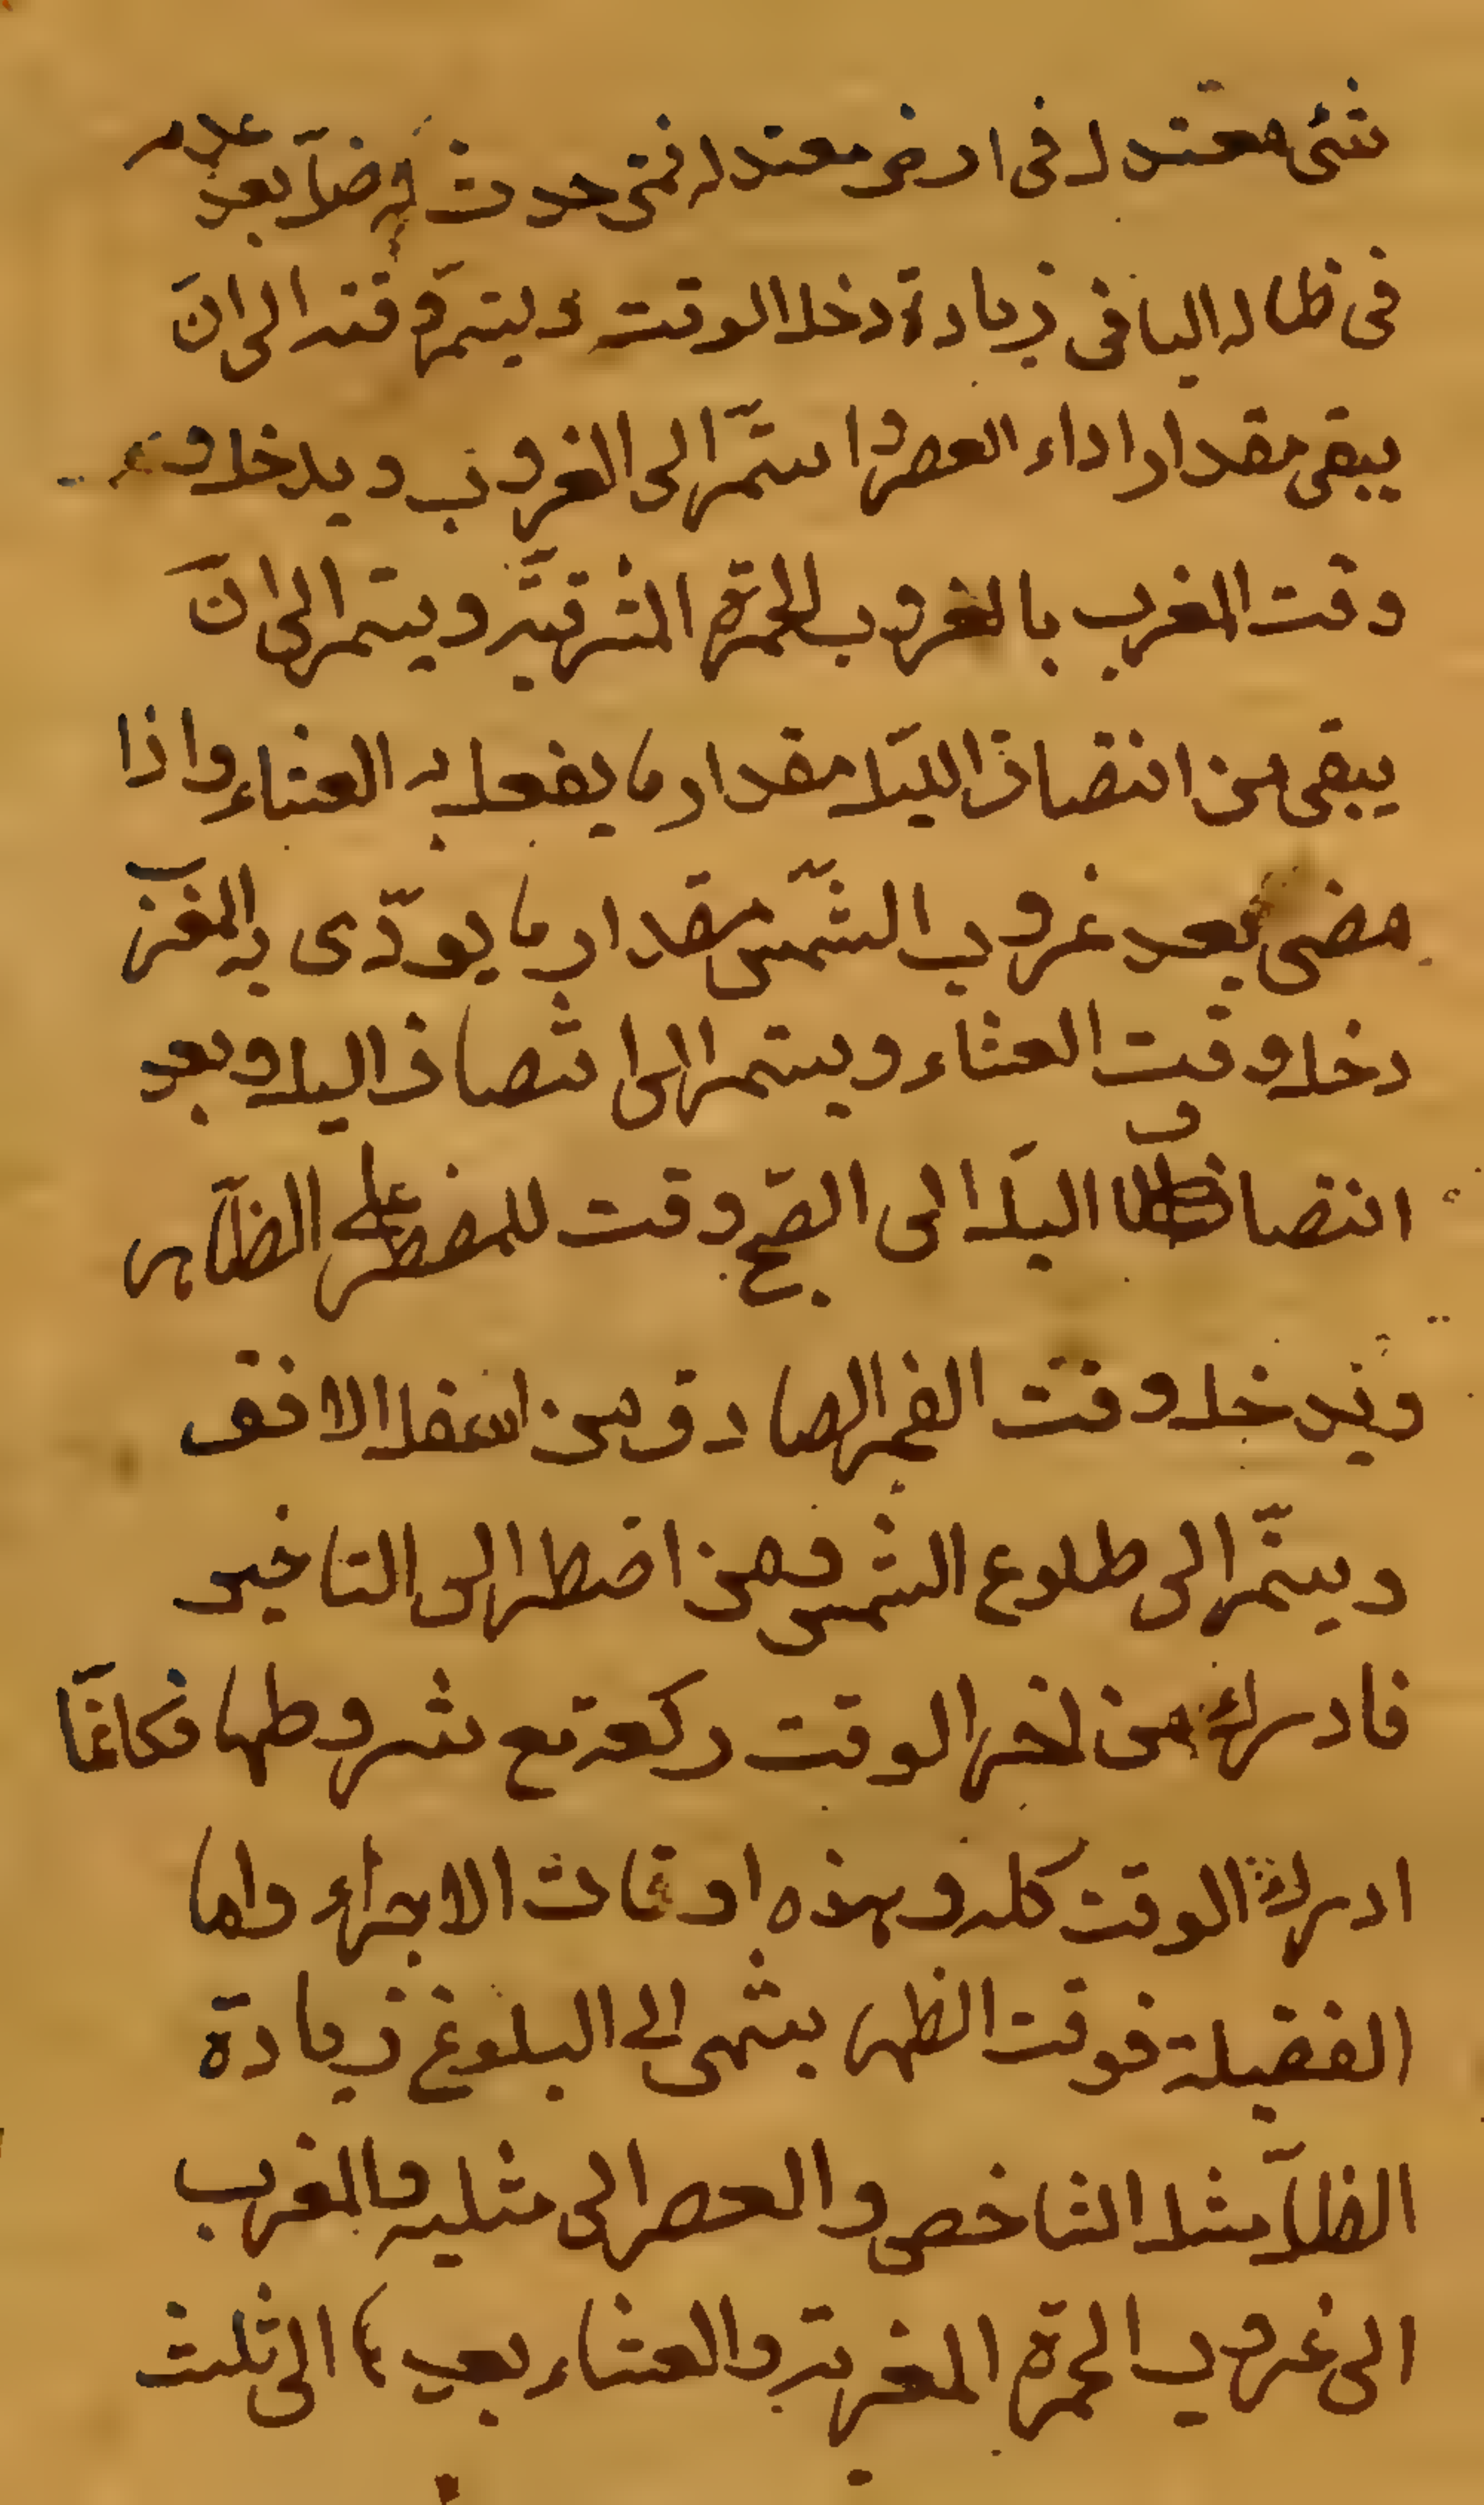 شئ معتدل فى ارض معتدلة فمتى حدث فيه ضل بعد عدم
فى ظاله الباقى زيادة دخل الوقت ويستمر وقته الى ان
يبقى مقدار اداء العصر استمر الى الغروب ويدخل
وقت المغرب بالغروب الحمرة المشرقية ويستمر الى ان
يبقى من انتصاف الليل مقدار ما يفعل به العشاء واذا
مضى بعد غروب الشمس مقدار ما يودى به المغرب
دخل وقت العشاء ويستمر الى انتصاف اليل وبعد
انتصاف اليل الى الصبح وقت للمضطر على الظاهر
ويدخل وقت الفجر الصادق من اسفل الافق
ويستمر الى طلوع الشمس فمن اضطر الى التاخير
فادرك من اخر الوقت ركعة مع شروطها فكانما
ادرك الوقت كله وهذه اوقات الاجزاء واما
الفضيلة فوقت الظهر ينتهى الى البلوغ زيادة
الظل مثل الشاخص والعصر الى مثليه والمغرب
الى غروب الحمرة المغربية والعشاء بعدها الى ثلث